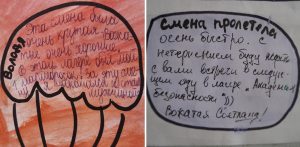 Володя
эта смена была
очень крутая. Вожа-
тые очень хорошие.
В этом лагере был мой
За эту сме-
Смена пролетела
осень быстро. с
нетерпением буду ждать
с вами встречи в следую-
щем году в лагере "Академия
безопасности"))
Вожатая Светлана!